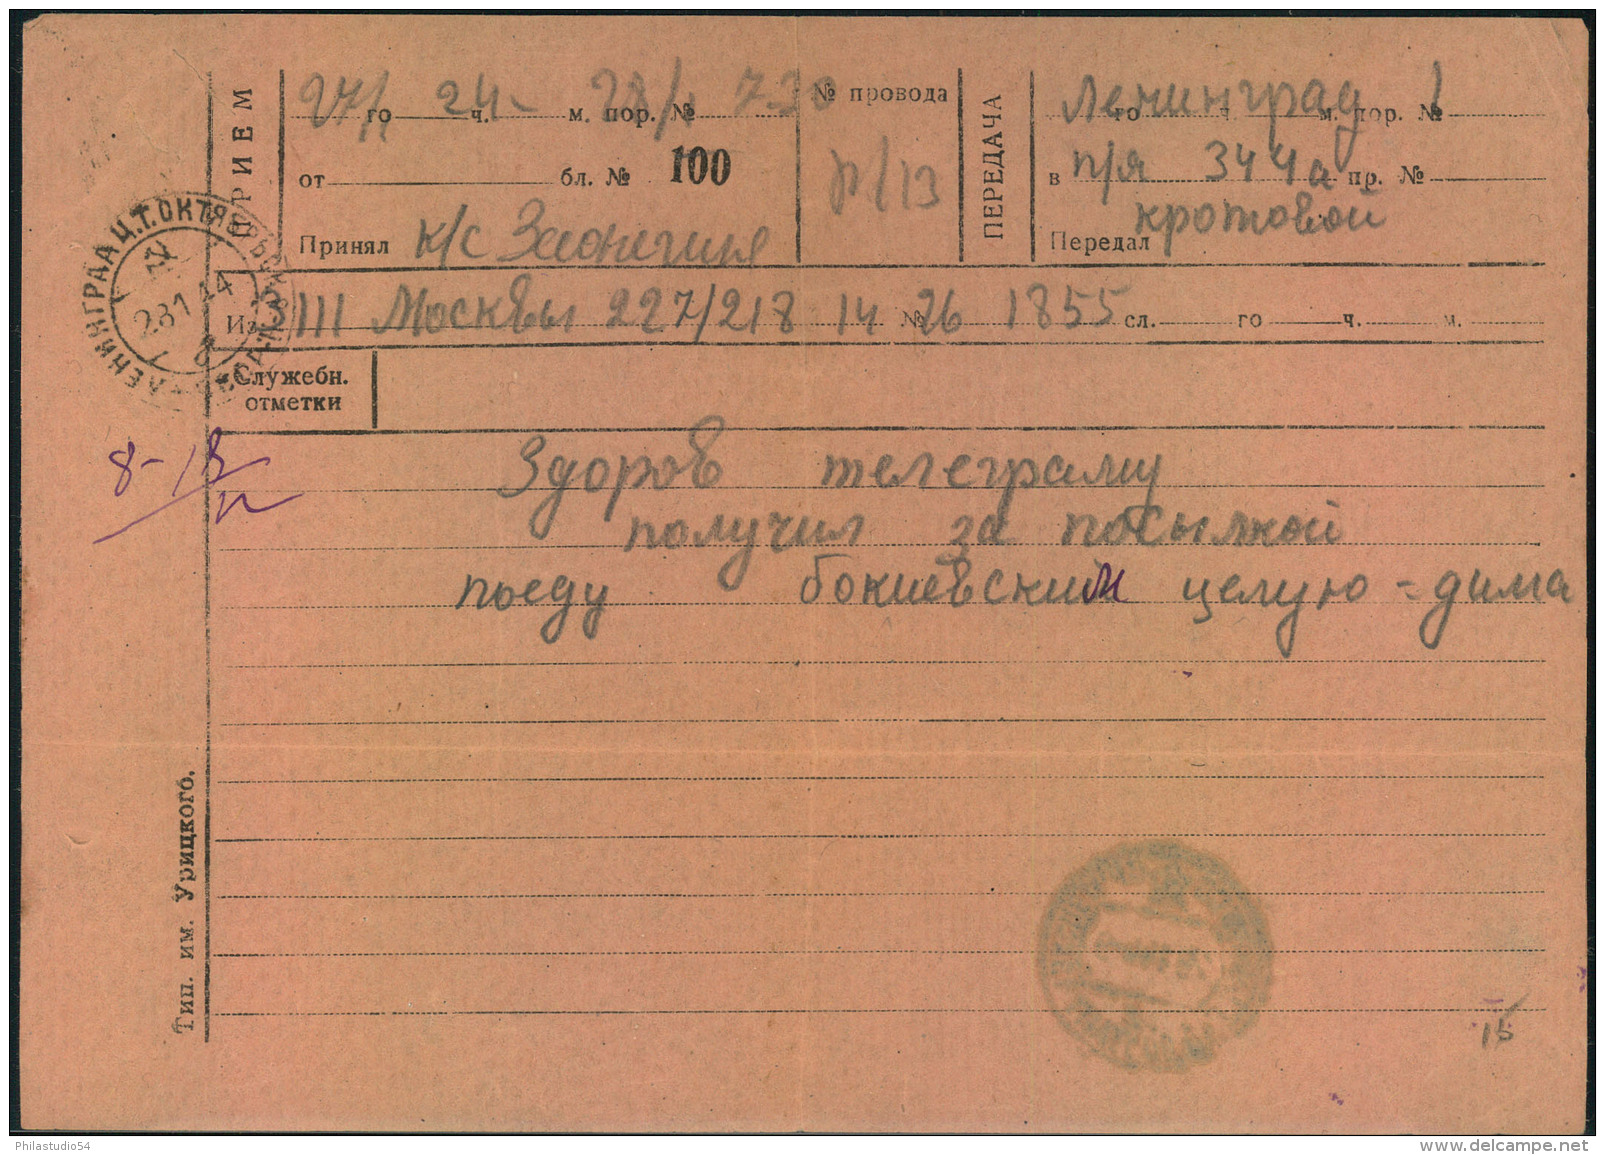 ПРИЕМ
27/I го 24 ч. - м. пор. № 28/I 7-30
от бл. № 100
Принял к/с
№ провода
р/13
ПЕРЕДАЧА
Ленинград 1
го ч. м. пор. №
в п/я 344а пр. №
Передал кротовой
ЛЕНИНГРАД Ц.Т. ОКТЯБРЬСК
28 1 44
8
Из III Москвы 227/218 14 № 26 1855 сл. го ч. м.
Служебн.
отметки
8-13
Здоров телеграму
получил за посылкой
поеду бокиевским целую = дима
Тип. им. Урицкого.
15
Philastudio54
www.delcampe.net